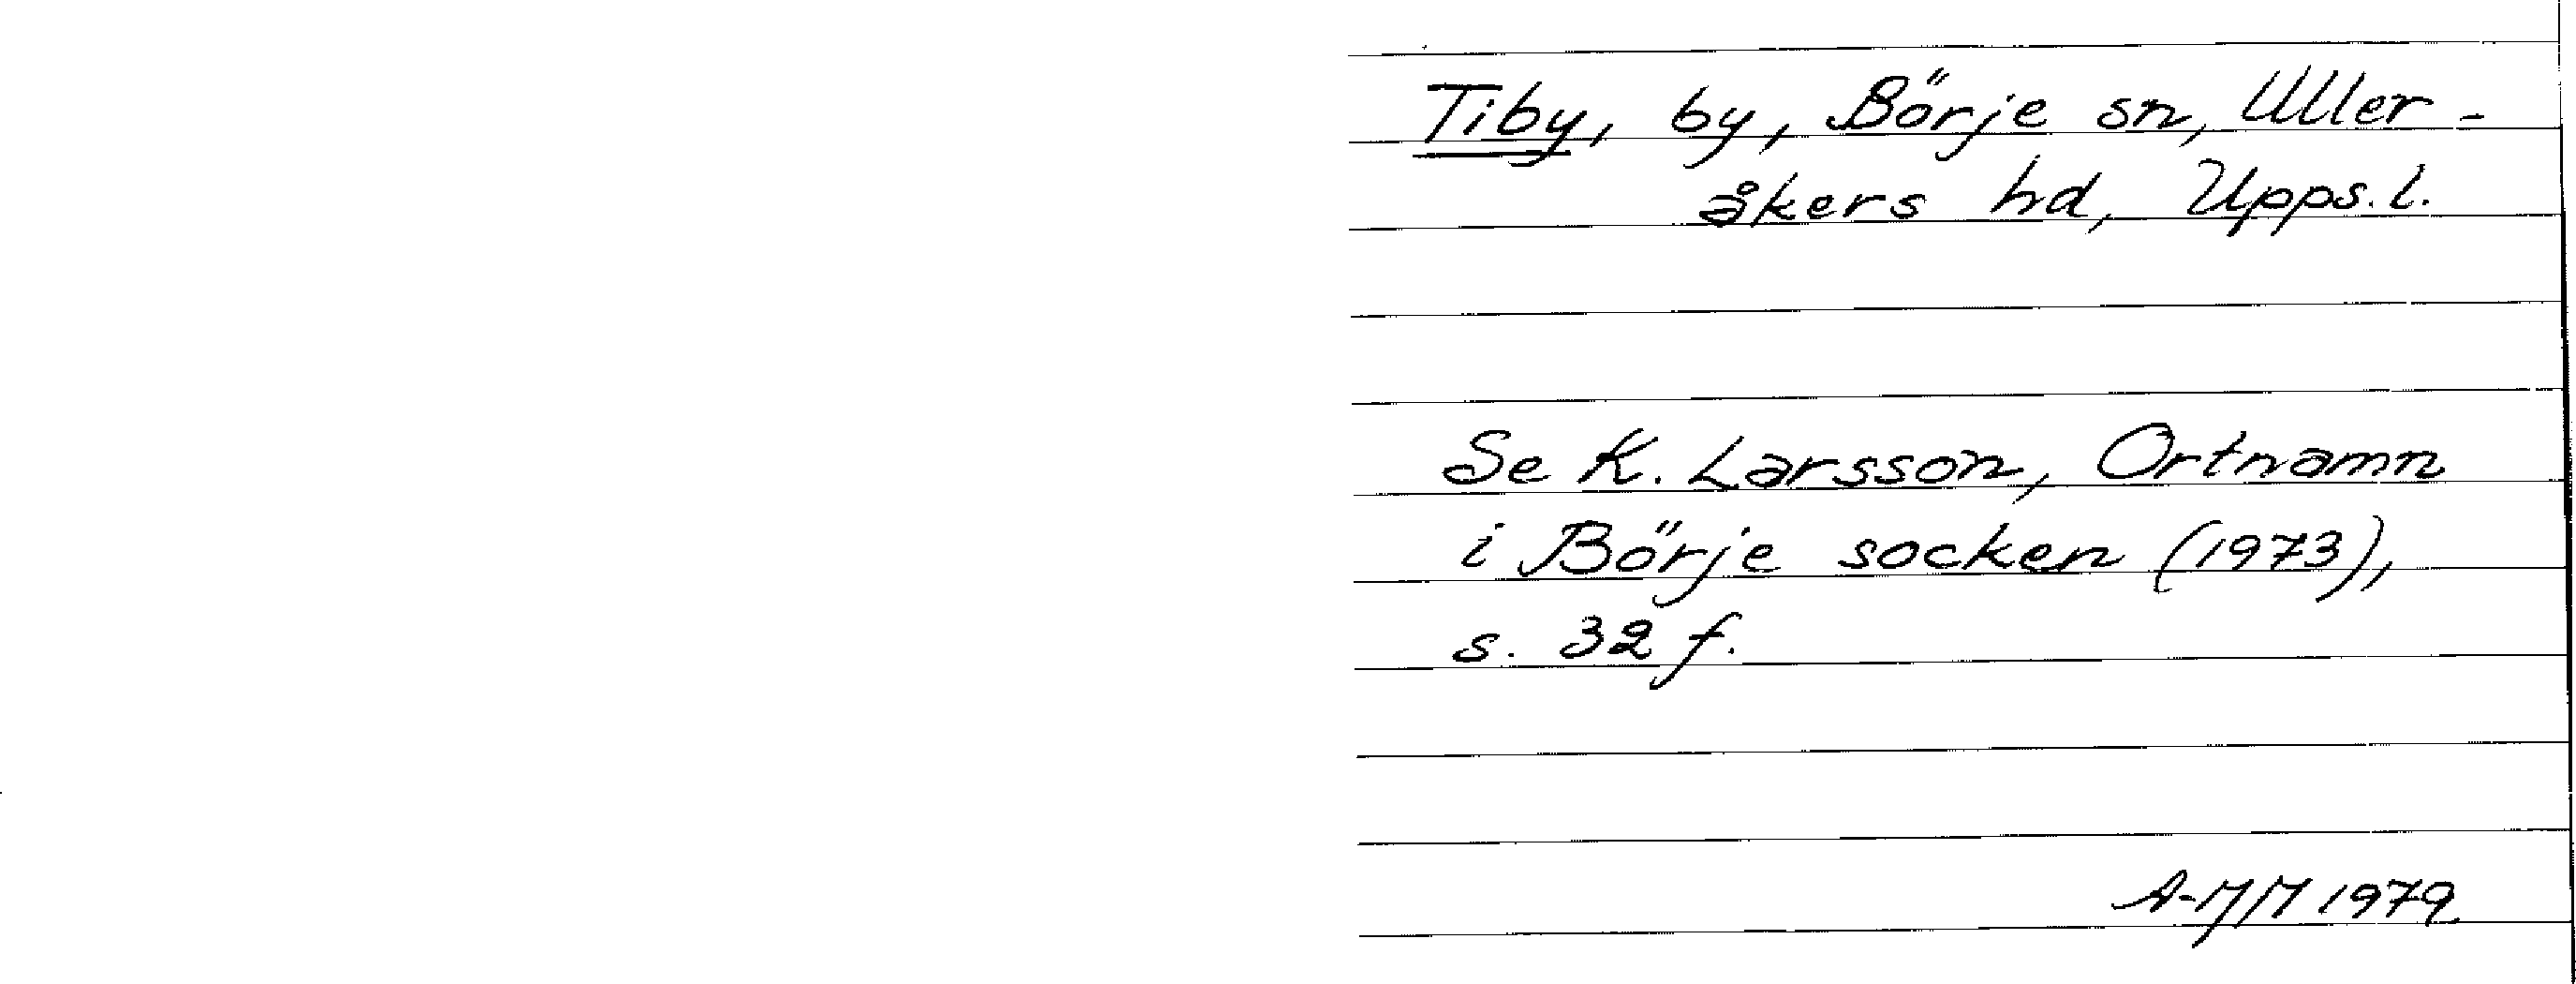 Tiby, by, Börje sn, Uller-
åkers hd, Upps. l.
Se K. Larsson, Ortnamn
i Börje socken (1973),
s. 32 f.
A-MM 1979